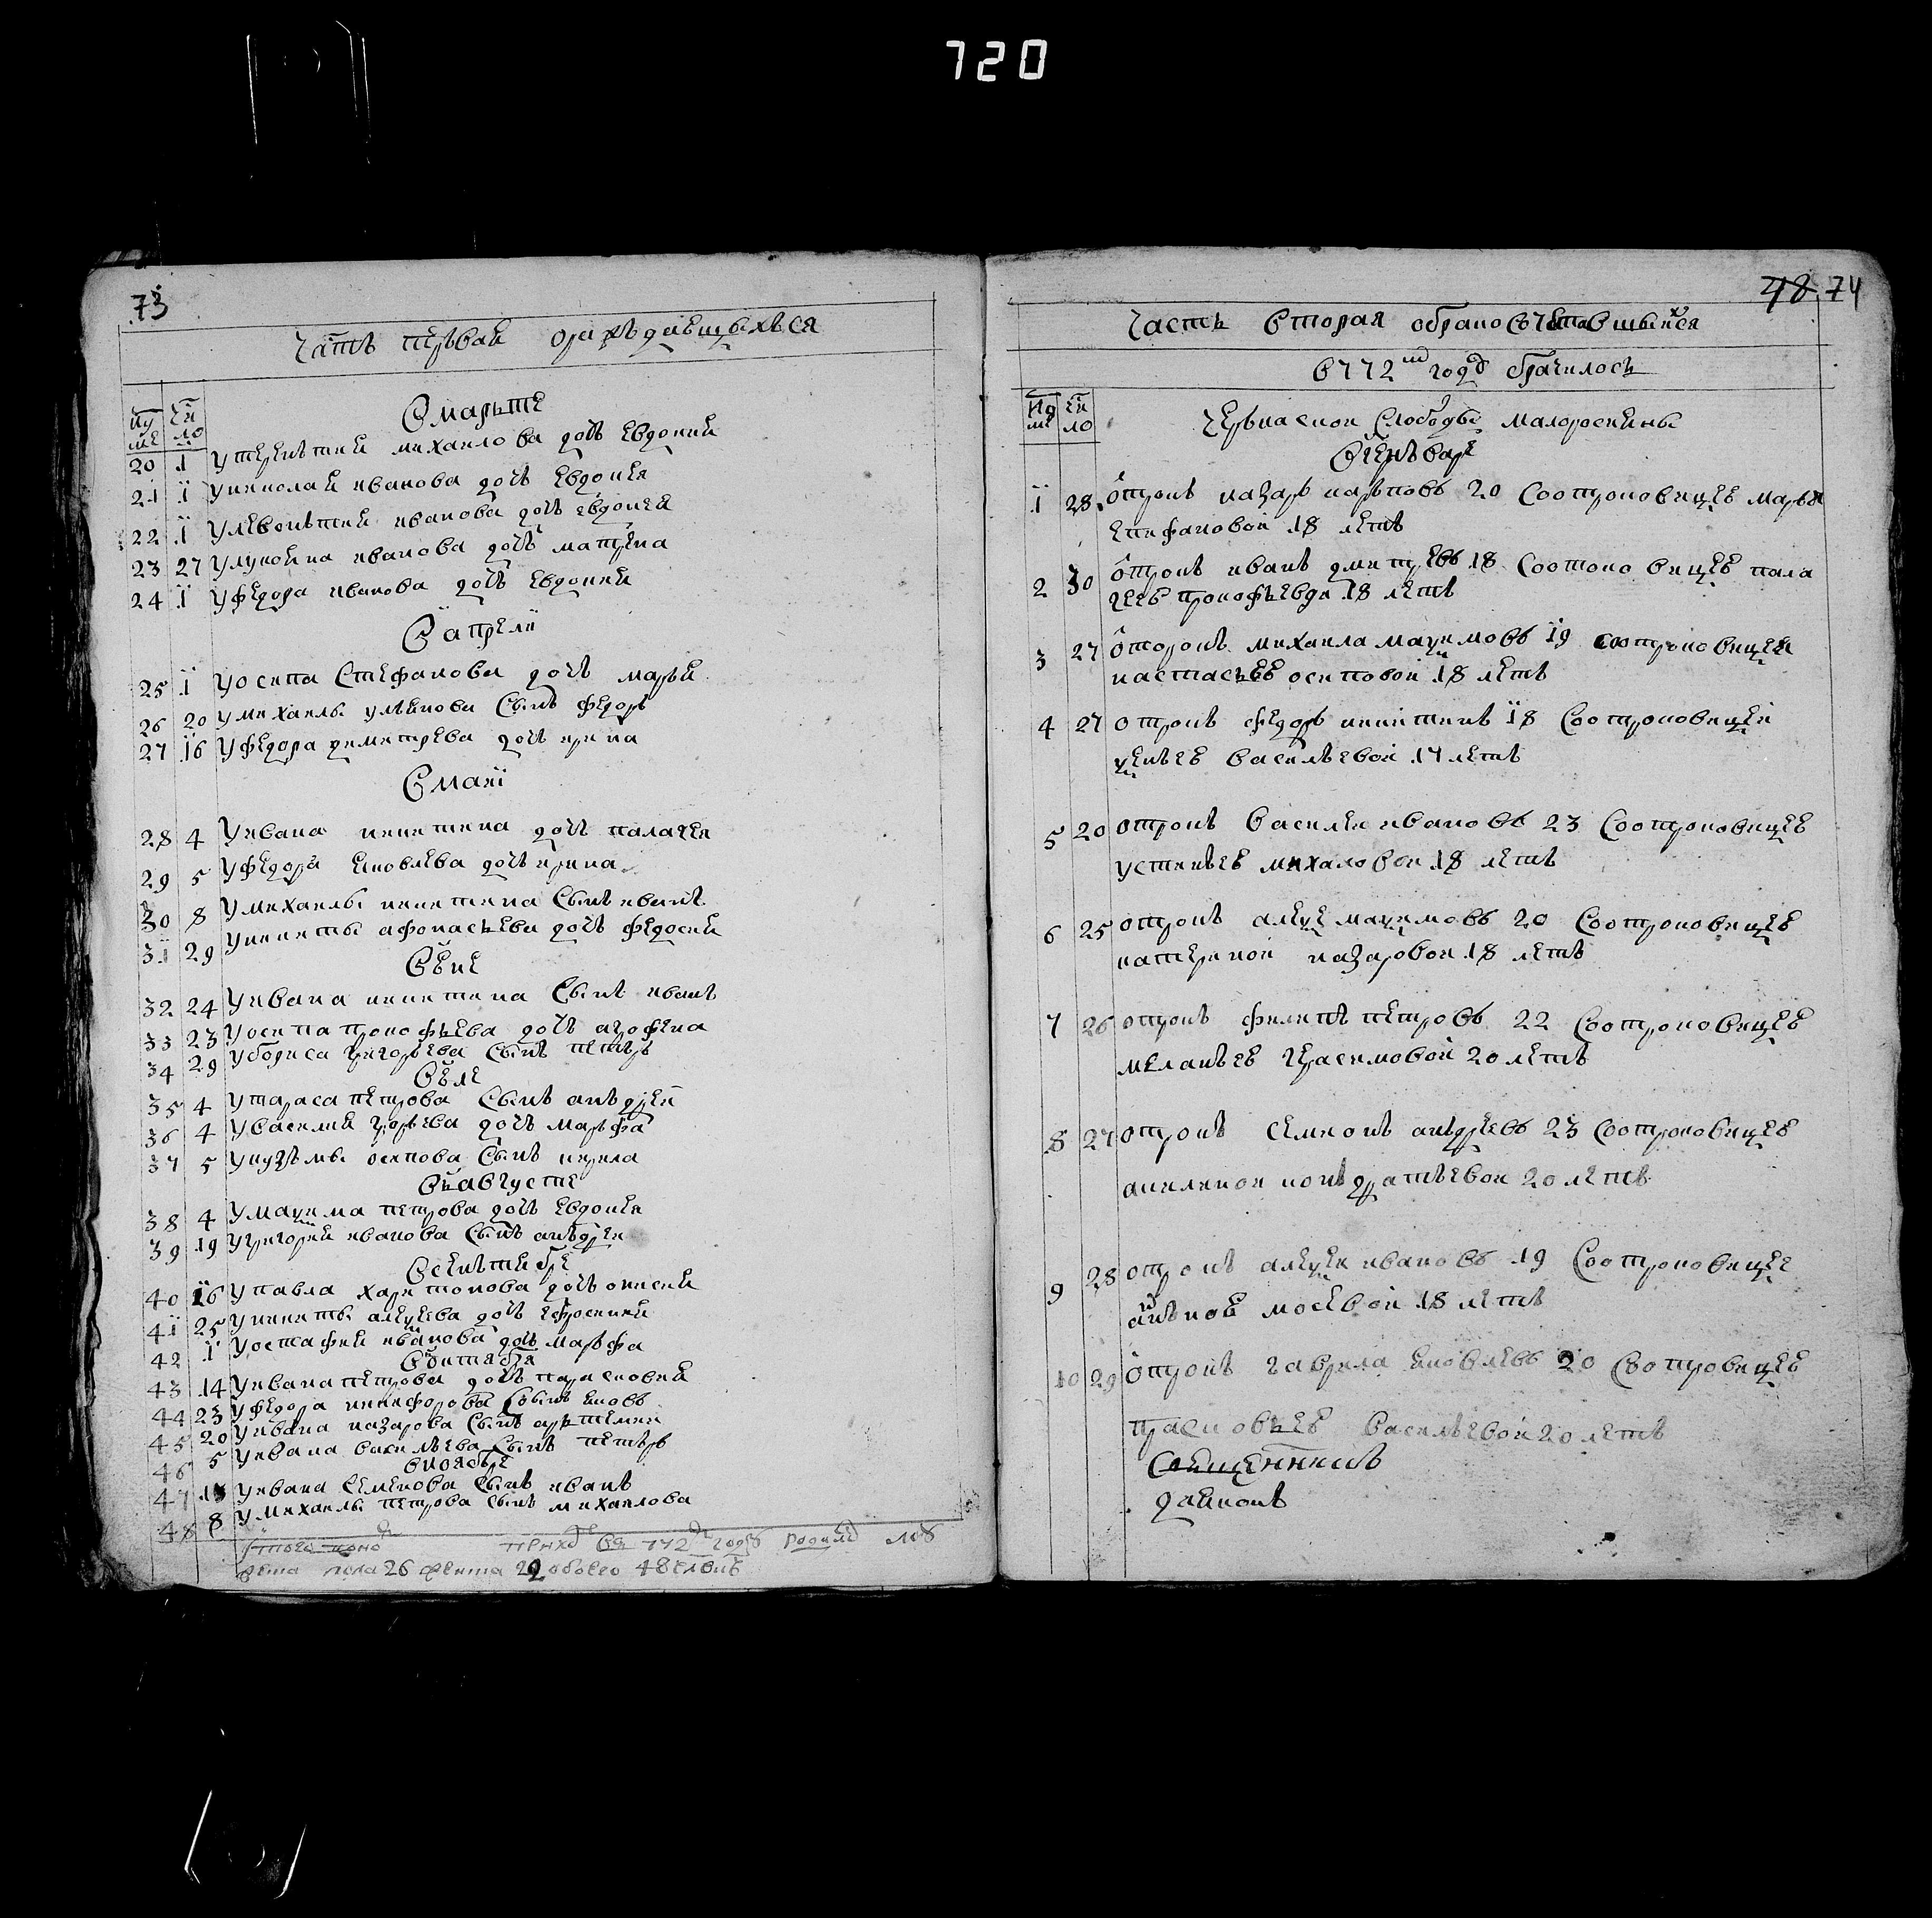 720
73
часть первая о раждающыхъся
ну ме чи ло
в марьте
20 1 у терентия михаилова дочь евдокия
21 1 у николая иванова дочь евдокия
22 1 у левонътия иванова дочь евдокея
23 27 у лукояна иванова дочь матрена
24 1 у федора иванова дочь евдокия
в апрели
25 1 у осипа стефанова дочь марья
26 20 у михаилы ульянова сынъ федоръ
27 16 у федора деметрева дочь ирина
в маии
28 4 у ивана никитина дочь палагея
29 5 у федора яковлева дочь ирина
30 8 у михаилы никитина сынъ иванъ
31 29 у никиты афонасьева дочь федосия
в юне
32 24 у ивана никитина сынъ иванъ
33 23 у осипа прокофьева дочь агрофена
34 29 у бориса григорьева сынъ петръ
в юле
35 4 у тараса петрова сынъ анъдрей
36 4 у василия егорьева дочь марьфа
37 5 у кузьмы осипова сынъ кирила
въ августе
38 4 у мацима петрова дочь евдокия
39 19 у григория иванова сынъ анъдреи
в сенътябре
40 16 у павла харитонова дочь оксения
41 25 у никиты алецеева дочь ефросиния
42 1 у остафия иванова дочь марьфа
в октября
43 14 у ивана петрова дочь парасковия
44 23 у федора никифорова сынъ яковъ
45 20 у ивана назарова сынъ арьтемеи
46 5 у ивана васильева сынъ петръ
в ноябре
47 13 у ивана семенова сынъ иванъ
48 8 у михаилы петрова сынъ михаилова
772 году
пола 26 женска 22 обоего 48 человкъ
48 74
часть вторая о бракосочетавшыхся
в 772м году брачилось
ну ме чи ло
черькаскои слободы малоросияны
в генъваре
1 28 отрокъ назаръ карповъ 20 со отроковицею марья
епифановои 18 летъ
2 30 отрокъ иванъ дмитревъ 18 со отоковицею пала
геею прокофьевои 18 летъ
3 27 оторокъ михаила мацимовъ 19 со отроковицеи
настасьею осиповои 18 летъ
4 27 отрокъ федоръ никитинъ 18 со отроковицеи
васильевои 17 летъ
5 20 отрокъ василеи ивановъ 23 со отроковицею
устиньею михаловои 18 летъ
6 25 отрокъ алецеи мацимовъ 20 со отроковицею
катериной назаровои 18 летъ
7 26 отрокъ филипъ петровъ 22 со отроковицею
меланьею герасимовои 20 летъ
8 27 отрокъ семионъ анъдреевъ 23 со отроковицею
акилинои конъдратьевои 20 летъ
9 28 отрокъ алецеи ивановъ 19 со отроковицее
анъною мосеевои 18 летъ
10 29 отрокъ гаврила яковлевъ 20 со отровицею
прасковьею васильевои 20 летъ
священникъ
дьяконъ